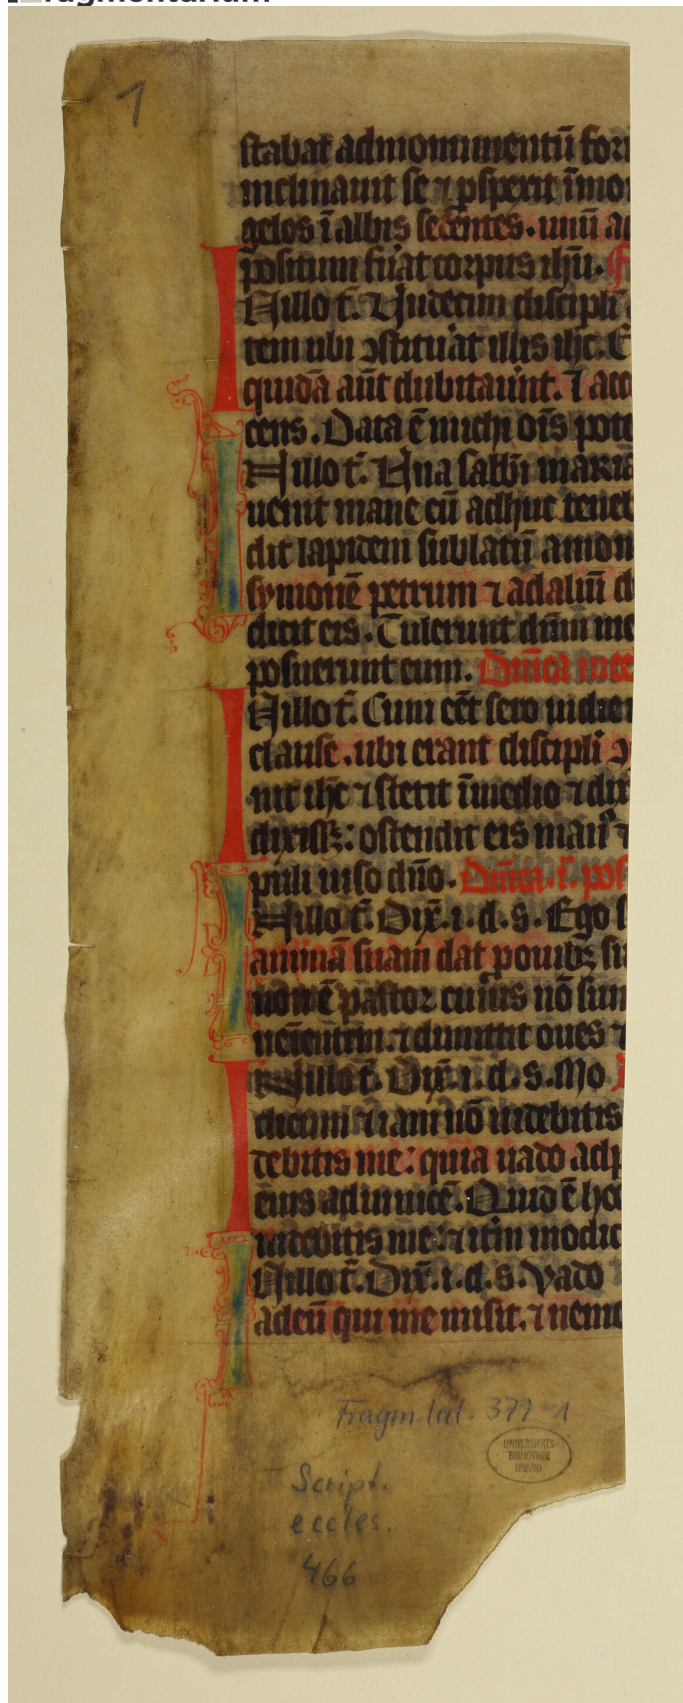 Fragmentarium
1
stabat admonumentū fori
inclinauit se ⁊ ꝓspexit ī mo
gelos ī albis sedentes. unū a
positum fuāt corpus ihū.
Nillo t̄. Undecim discipli
tem ubi ↄstituāt illis ihc. E
quidā aūt dubitauīnt. ⁊ acc
cens. Data ē michi oīs pote
Nillo t̄. Una sabbi maria
uenit mane cū adhuc teneb
dit lapidem sublatū amon
symonē petrum ⁊ adaliū d
dicit eis. Tulerunt dn̄m me
posuerunt eum. Dn̄ica
Nillo t̄. Cum eēt sero indie
clause. ubi erant discipli
nit ihc ⁊ stetit ī medio ⁊ dix
dixisꝫ: ostendit eis man⁹ ⁊
puli uiso dn̄o. Dn̄ica. ii. pos
Nillo t̄. Dix̄. i. d. s. Ego s
animā suam dat ꝓ ouibꝫ su
non ē pastor cuius nō sun
uenientem. ⁊ dimittit oues ⁊
Nillo t̄. Dix̄. i. d. s. Mo
dicum ⁊ iam nō uidebitis
debitis me: quia uado adp
eius adinuicē. Quid ē hoc
uidebitis me: ⁊ itm̄ modic
Nillo t̄. Dix̄. i. d. s. Vado
adeū qui me misit. ⁊ nemo
Fragm. lat. 377-1
UNIVERSITÄTS-
BIBLIOTHEK
LEIPZIG
Script.
eccles.
466